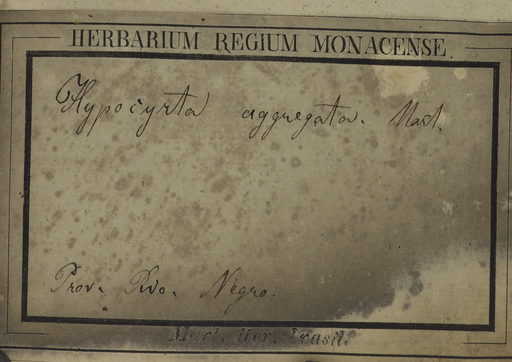 HERBARIUM REGIUM MONACENSE.
Hypocyrta aggregata. Mart.
Prov. Rio. Negro.
Mart. iter. brasil.